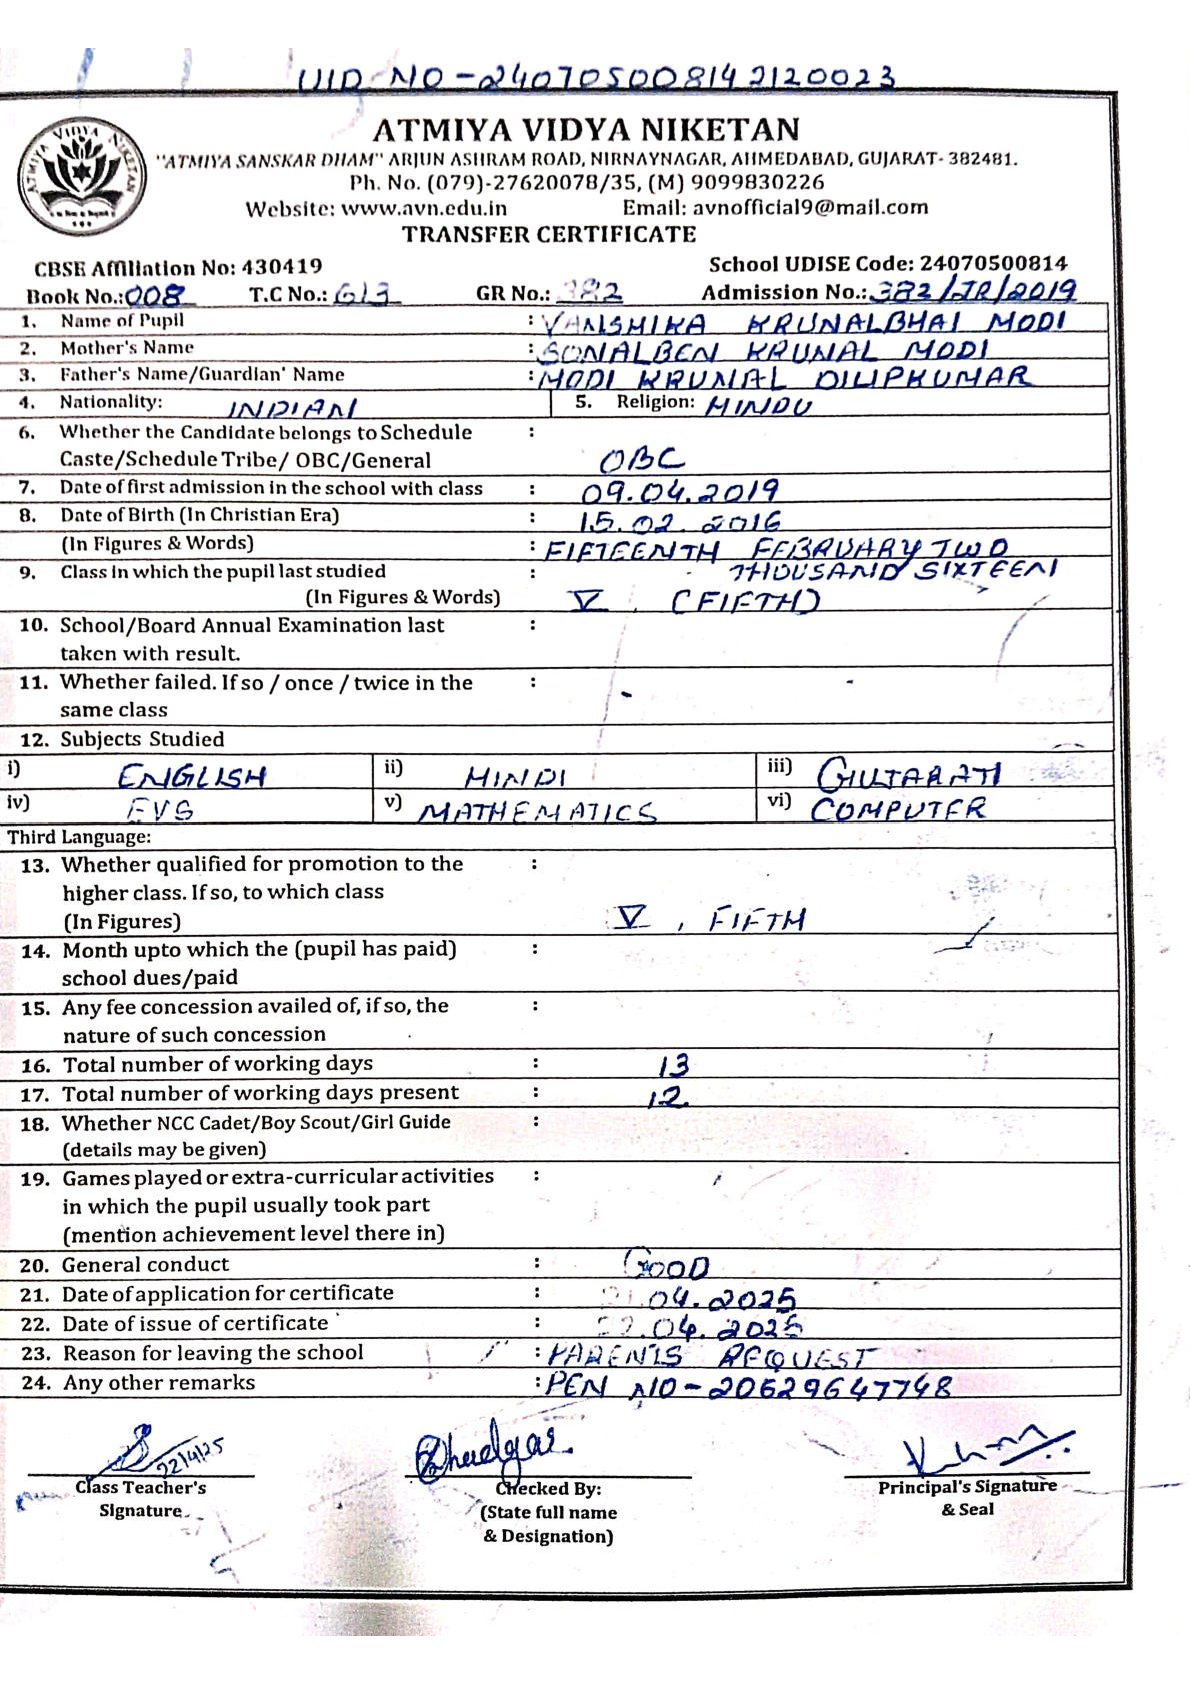 UID NO - 240705008142120023
ATMIYA VIDYA NIKETAN
ATMIYA VIDYA NIKETAN
"ATMIYA SANSKAR DHAM" ARJUN ASHRAM ROAD, NIRNAYNAGAR, AHMEDABAD, GUJARAT- 382481.
Ph. No. (079)-27620078/35, (M) 9099830226
Website: www.avn.edu.in Email: avnofficial9@mail.com
TRANSFER CERTIFICATE
CBSE Affiliation No: 430419 School UDISE Code: 24070500814
Book No.: 008 T.C No.: 613 GR No.: 382 Admission No.: 382/JR/2019
1. Name of Pupil : VANSHIKA KRUNALBHAI MODI
2. Mother's Name : SONALBEN KRUNAL MODI
3. Father's Name/Guardian' Name : MODI KRUNAL DILIPKUMAR
4. Nationality: INDIAN 5. Religion: HINDU
6. Whether the Candidate belongs to Schedule :
Caste/Schedule Tribe/ OBC/General OBC
7. Date of first admission in the school with class : 09.04.2019
8. Date of Birth (In Christian Era) : 15.02.2016
(In Figures & Words) : FIFTEENTH FEBRUARY TWO
9. Class in which the pupil last studied : THOUSAND SIXTEEN
(In Figures & Words) V , (FIFTH)
10. School/Board Annual Examination last :
taken with result.
11. Whether failed. If so / once / twice in the : - -
same class
12. Subjects Studied
i) ENGLISH ii) HINDI iii) GUJARATI
iv) EVS v) MATHEMATICS vi) COMPUTER
Third Language:
13. Whether qualified for promotion to the :
higher class. If so, to which class
(In Figures) V , FIFTH
14. Month upto which the (pupil has paid) :
school dues/paid
15. Any fee concession availed of, if so, the :
nature of such concession
16. Total number of working days : 13
17. Total number of working days present : 12
18. Whether NCC Cadet/Boy Scout/Girl Guide :
(details may be given)
19. Games played or extra-curricular activities :
in which the pupil usually took part
(mention achievement level there in)
20. General conduct : GOOD
21. Date of application for certificate : 21.04.2025
22. Date of issue of certificate : 22.04.2025
23. Reason for leaving the school : PARENTS REQUEST
24. Any other remarks : PEN NO - 20629647748
22/4/25
Class Teacher's Checked By: Principal's Signature
Signature (State full name & Seal
& Designation)